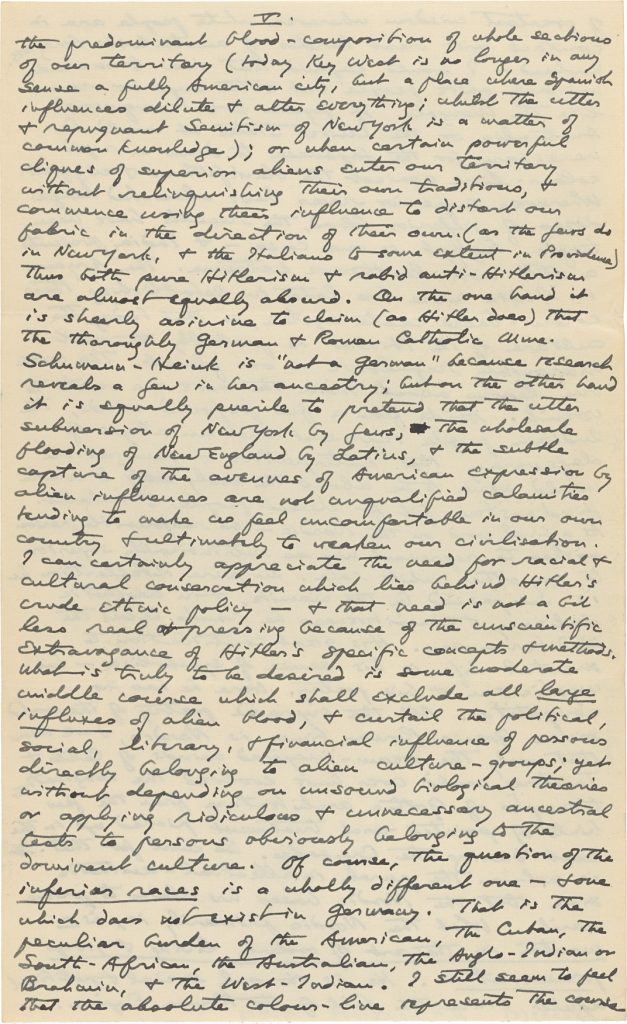 V.
the predominant blood-composition of whole sections
of our territory (today Key West is no longer in any
sense a fully American city, but a place where Spanish
influences dilute & alter everything; whilst the utter
& repugnant Semitism of New York is a matter of
common knowledge); or when certain powerful
cliques of superior aliens enter our territory
without relinquishing their own traditions, &
commence using their influence to distort our
fabric in the direction of their own. (as the Jews do
in New York, & the Italians to some extent in Providence)
Thus both pure Hitlerism & rabid anti-Hitlerism
are almost equally absurd. On the one hand it
is sheerly asinine to claim (as Hitler does) that
the thoroughly German & Roman Catholic Mme.
Schumann-Heink is "not a German" because research
reveals a Jew in her ancestry; but on the other hand
it is equally puerile to pretend that the utter
submersion of New York by Jews, the wholesale
flooding of New England by Latins, & the subtle
capture of the avenues of American expression by
alien influences are not unqualified calamities
tending to make us feel uncomfortable in our own
country & ultimately to weaken our civilisation.
I can certainly appreciate the need for racial &
cultural conservation which lies behind Hitler's
crude ethnic policy — & that need is not a bit
less real & pressing because of the unscientific
extravagance of Hitler's specific concepts & methods.
What is truly to be desired is some moderate
middle course which shall exclude all large
influxes of alien blood, & curtail the political,
social, literary, & financial influence of persons
directly belonging to alien culture-groups; yet
without depending on unsound biological theories
or applying ridiculous & unnecessary ancestral
tests to persons obviously belonging to the
dominant culture. Of course, the question of the
inferior races is a wholly different one — & one
which does not exist in Germany. That is the
peculiar burden of the American, the Cuban, the
South-African, the Australian, the Anglo-Indian or
Brahmin, & the West-Indian. I still seem to feel
that the absolute colour-line represents the course